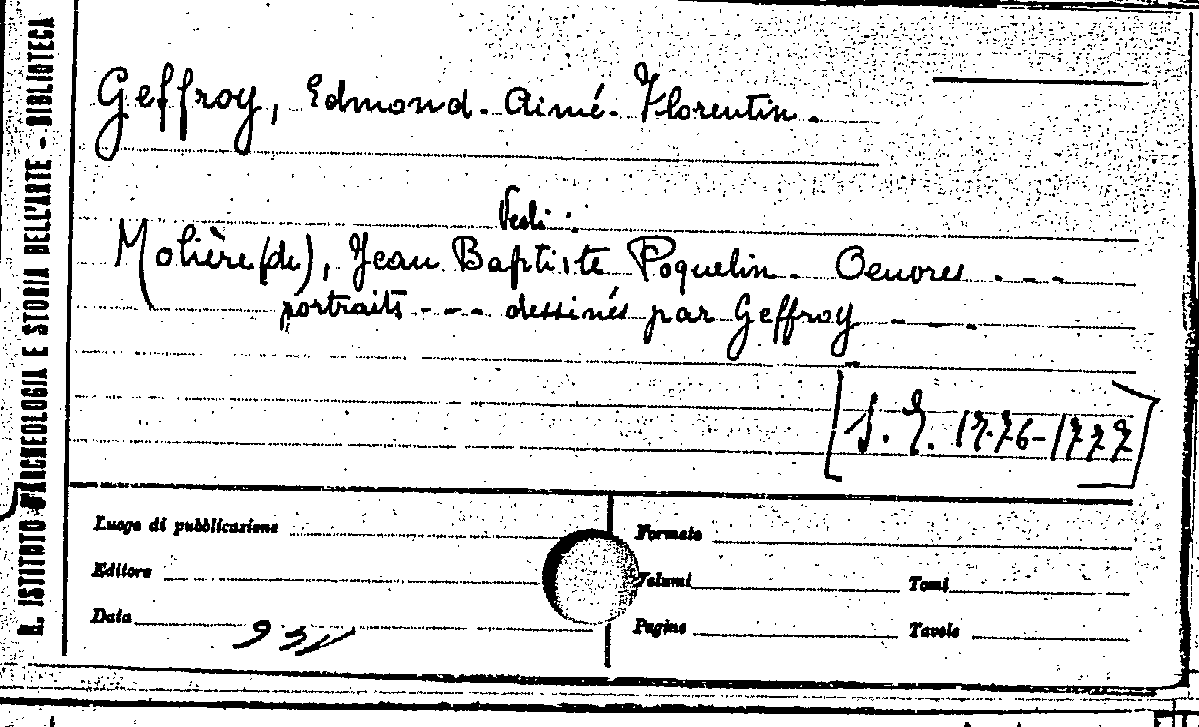 R. ISTITUTO D'ARCHEOLOGIA E STORIA DELL'ARTE - BIBLIOTECA
Geffroy, Edmond. Aimé. Florentin.
Vedi:
Molière (de), Jean Baptiste Poquelin. Oeuvres . - - -
portraits - - - dessinés par Geffroy - - -
1776-1777
Luogo di pubblicazione
Formato
Editore
Volumi
Tomi
Data
Pagine
Tavole